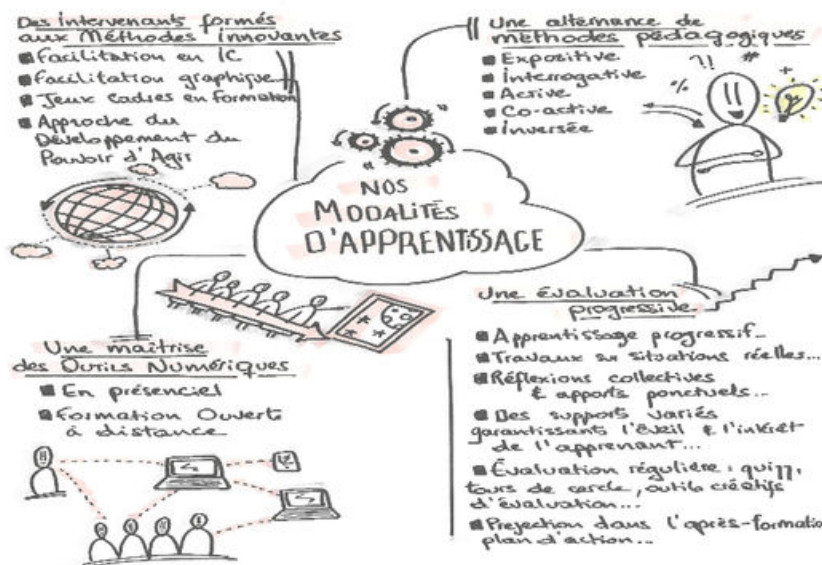 Des intervenants formés
aux Méthodes innovantes
Facilitation en IC
Facilitation graphique
Jeux cadres en formation
Approche du
Développement du
Pouvoir d'Agir
Une alternance de
méthodes pédagogiques
Expositive
Interrogative
Active
Co-active
Inversée
?!
#
%
+
NOS
MODALITÉS
D'APPRENTISSAGE
Une maîtrise
des Outils Numériques
En présenciel
Formation Ouverte
à distance
Une évaluation
progressive
Apprentissage progressif...
Travaux sur situations réelles...
Réflexions collectives
& apports ponctuels...
Des supports variés
garantissants l'éveil & l'intérêt
de l'apprenant...
Évaluation régulière : quizz,
tours de cercle, outils créatifs
d'évaluation...
Projection dans l'après-formation
plan d'action...